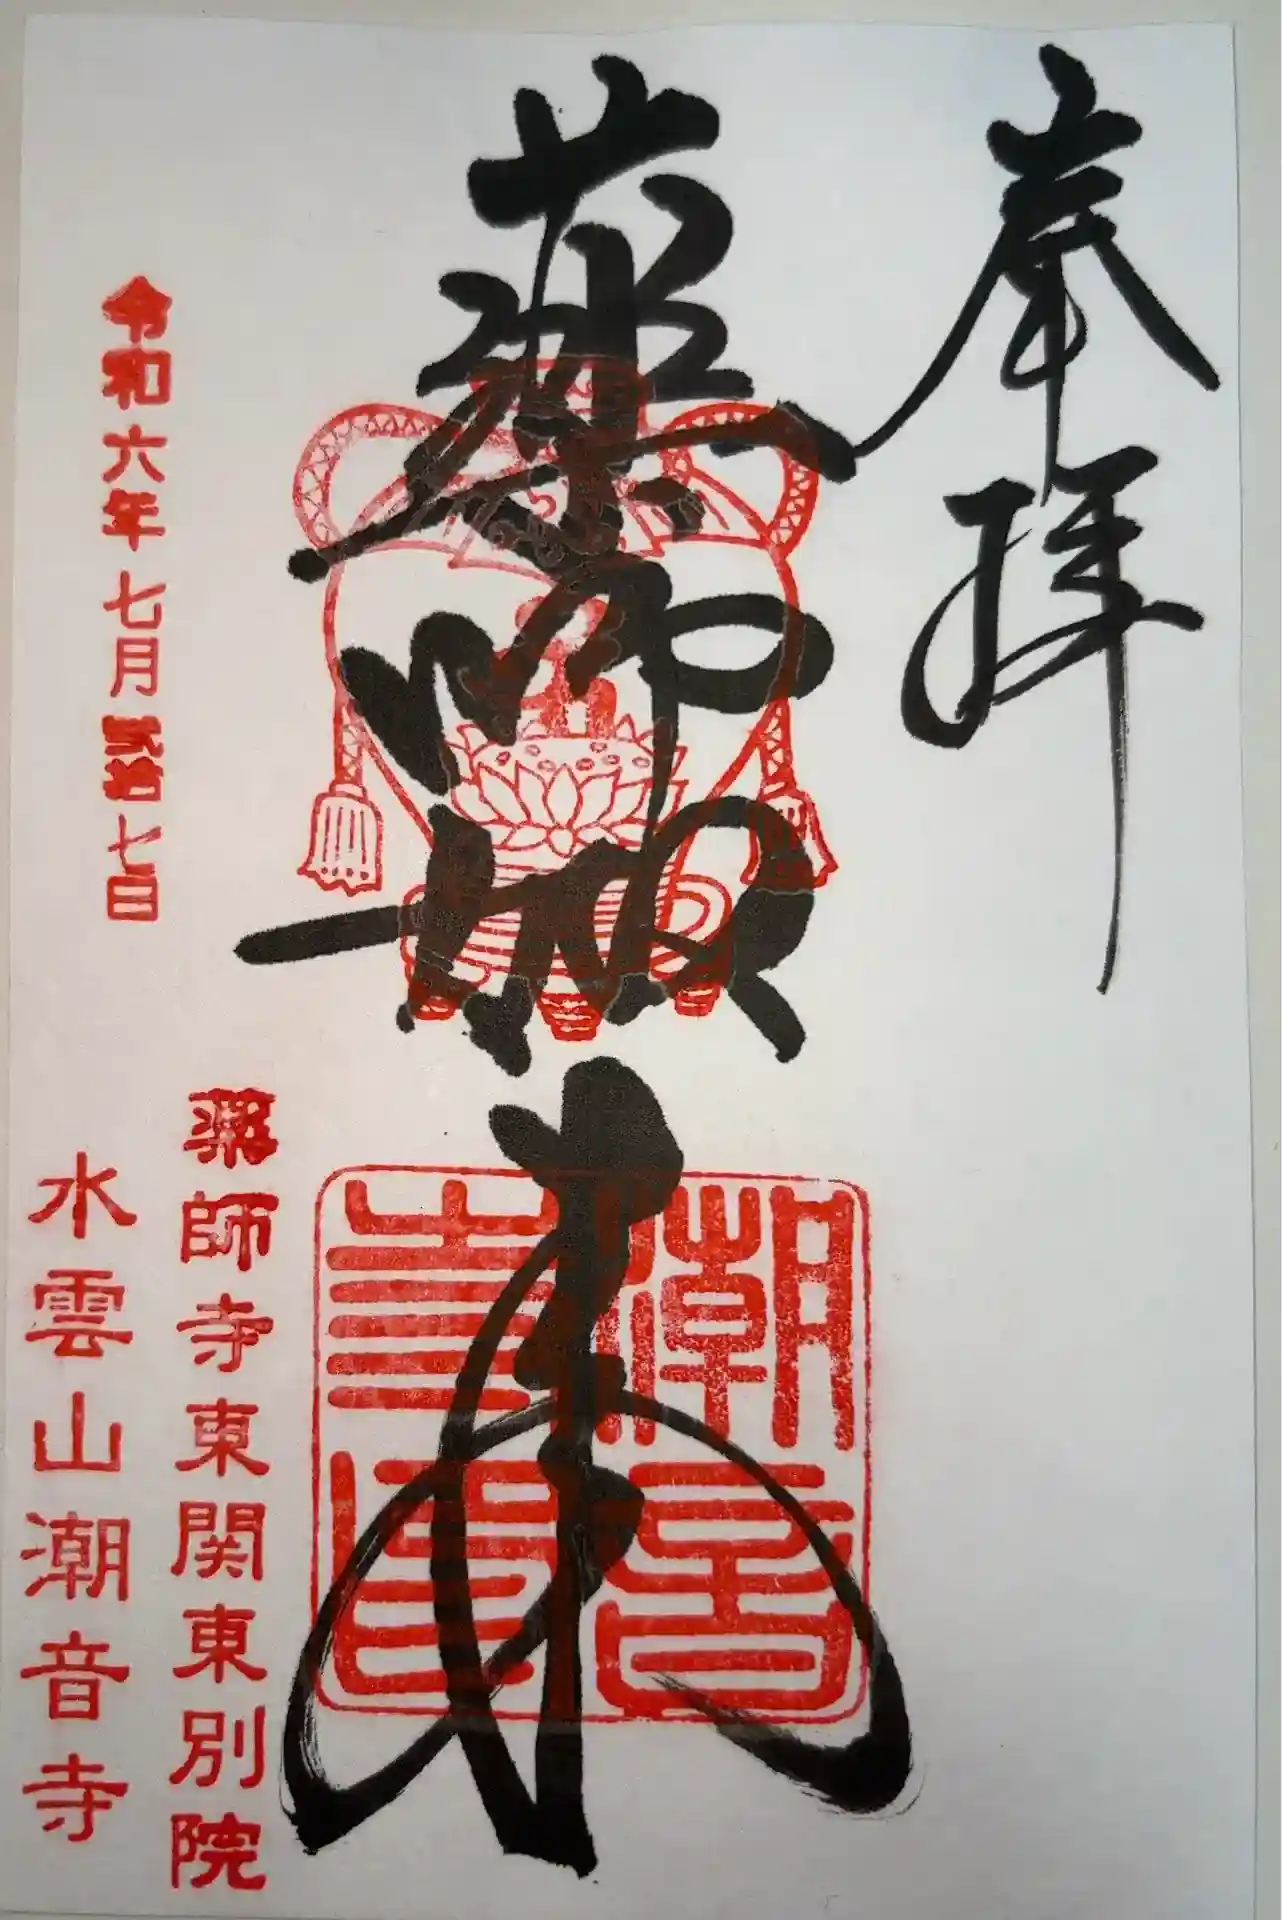 奉拝
薬師如来
潮音寺印
令和六年七月弐拾七日
薬師寺東関東別院
水雲山潮音寺